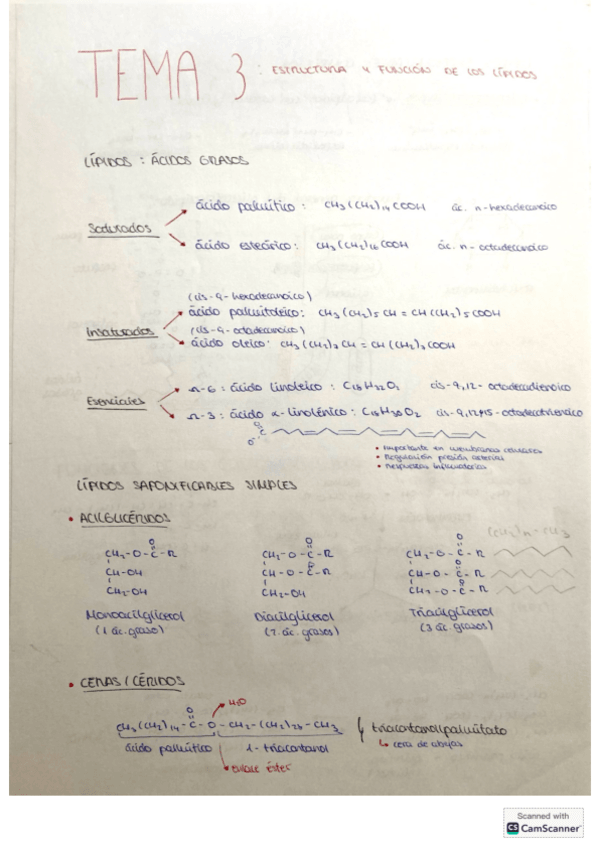 TEMA 3 : ESTRUCTURA Y FUNCIÓN DE LOS LÍPIDOS
LÍPIDOS : ÁCIDOS GRASOS
Saturados
ácido palmítico : CH3(CH2)14COOH ác. n-hexadecanoico
ácido esteárico : CH3(CH2)16COOH ác. n-octadecanoico
Insaturados
(cis-9-hexadecanoico)
ácido palmitoleico : CH3(CH2)5CH=CH(CH2)5COOH
(cis-9-octadecanoico)
ácido oleico : CH3(CH2)7CH=CH(CH2)7COOH
Esenciales
Ω-6 : ácido linoleico : C18H32O2 cis-9,12-octadecadienoico
Ω-3 : ácido α-linolénico : C18H30O2 cis-9,12,15-octadecatrienoico
• Importante en membranas celulares
• Regulación presión arterial
• Respuesta inflamatoria
LÍPIDOS SAPONIFICABLES SIMPLES
• ACILGLICÉRIDOS
(CH2)n-CH3
O O O
CH2-O-C-R CH2-O-C-R CH2-O-C-R
CH-OH CH-O-C-R CH-O-C-R
CH2-OH CH2-OH CH2-O-C-R
Monoacilglicerol Diacilglicerol Triacilglicerol
(1 ác. graso) (2 ác. grasos) (3 ác. grasos)
• CERAS / CÉRIDOS
H2O
O
CH3(CH2)14-C-O-CH2-(CH2)28-CH3 triacontanoilpalmitato
ácido palmítico 1-triacontanol cera de abejas
enlace éster
Scanned with
CS CamScanner